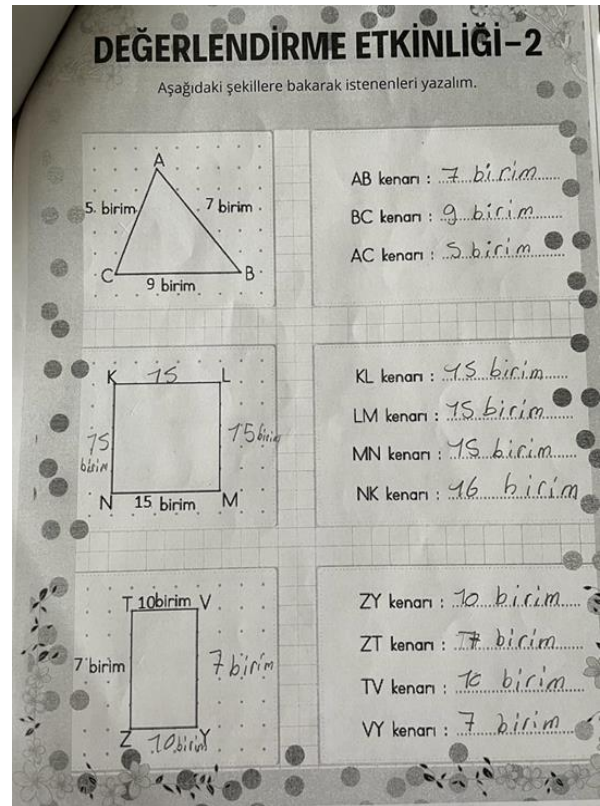 DEĞERLENDİRME ETKİNLİĞİ-2
Aşağıdaki şekillere bakarak istenenleri yazalım.
A
5 birim
7 birim
C
B
9 birim
AB kenarı : 7 birim
BC kenarı : 9 birim
AC kenarı : 5 birim
K 15 L
15 birim
15 birim
N 15 birim M
KL kenarı : 15 birim
LM kenarı : 15 birim
MN kenarı : 15 birim
NK kenarı : 16 birim
T 10birim V
7 birim
7 birim
Z 10 birim Y
ZY kenarı : 10 birim
ZT kenarı : 7 birim
TV kenarı : 10 birim
VY kenarı : 7 birim